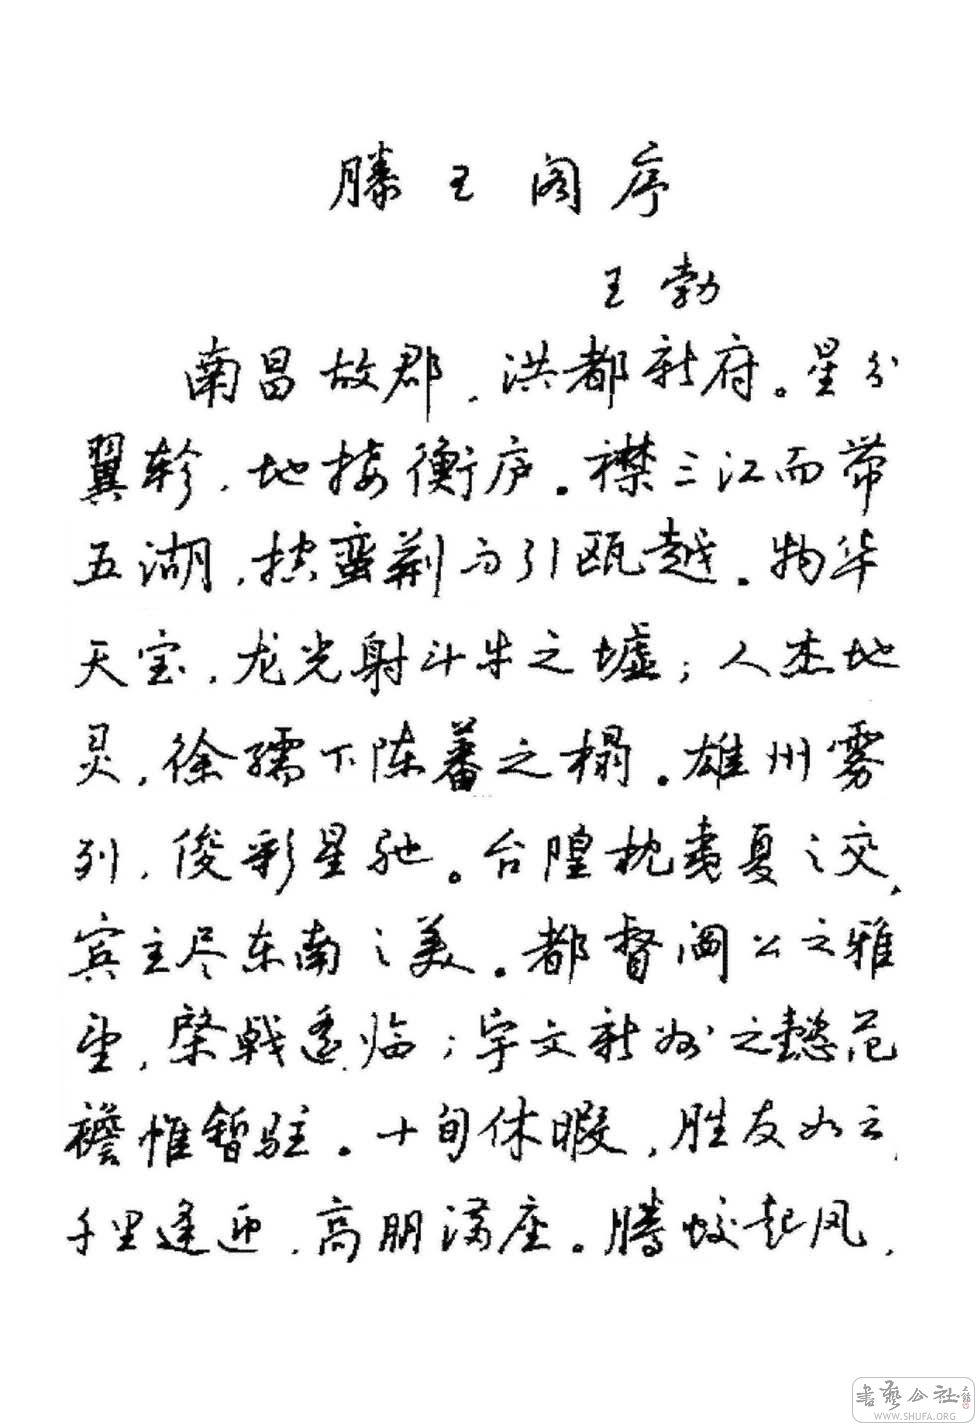 滕王阁序
王勃
南昌故郡，洪都新府。星分
翼轸，地接衡庐。襟三江而带
五湖，控蛮荆而引瓯越。物华
天宝，龙光射斗牛之墟；人杰地
灵，徐孺下陈蕃之榻。雄州雾
列，俊彩星驰。台隍枕夷夏之交，
宾主尽东南之美。都督阎公之雅
望，棨戟遥临；宇文新州之懿范
襜帷暂驻。十旬休暇，胜友如云，
千里逢迎，高朋满座。腾蛟起凤，
書藝公社
WWW.SHUFA.ORG